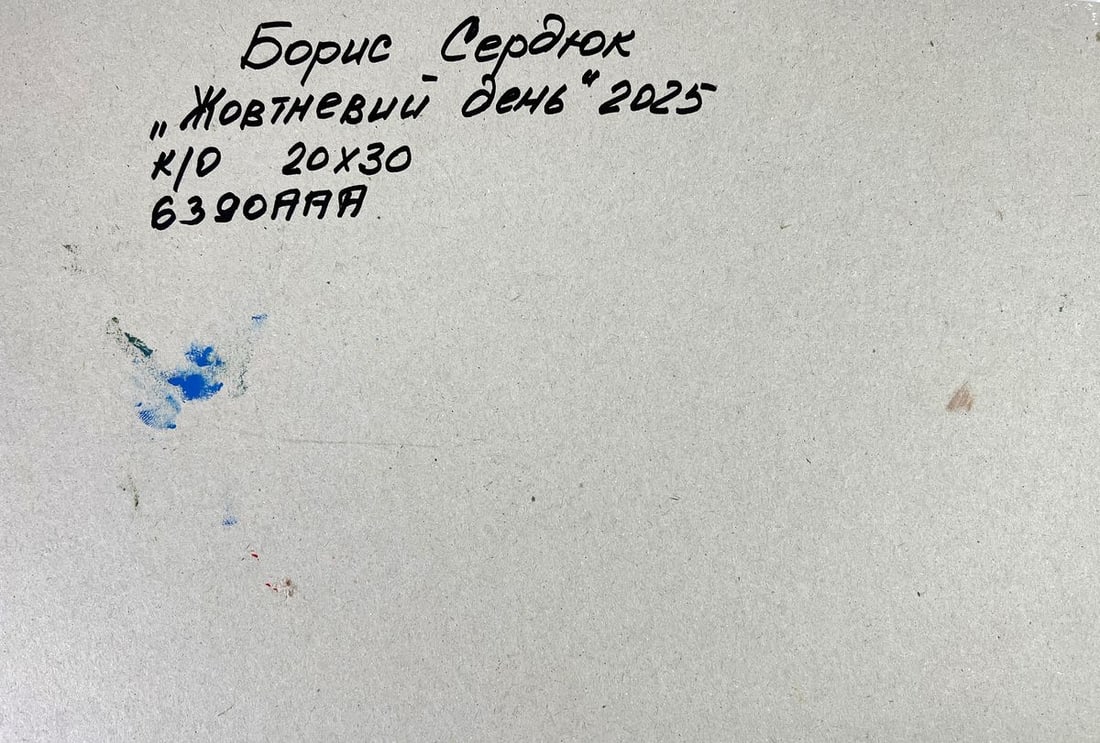 Борис Сердюк
„Жовтневий день“ 2025
К/О 20х30
6390ААА